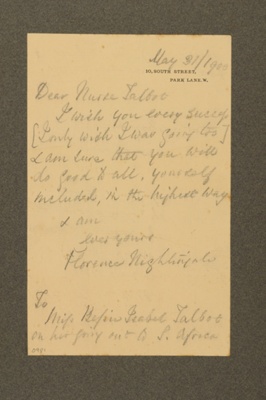 May 31/1900
10, SOUTH STREET,
PARK LANE. W.
Dear Nurse Talbot
I wish you every success
[I only wish I was going too]
& am sure that you will
do good to all, yourself
included, in the highest way
I am
ever yours
Florence Nightingale
To
Miss Isabel Talbot
on her going out to S. Africa